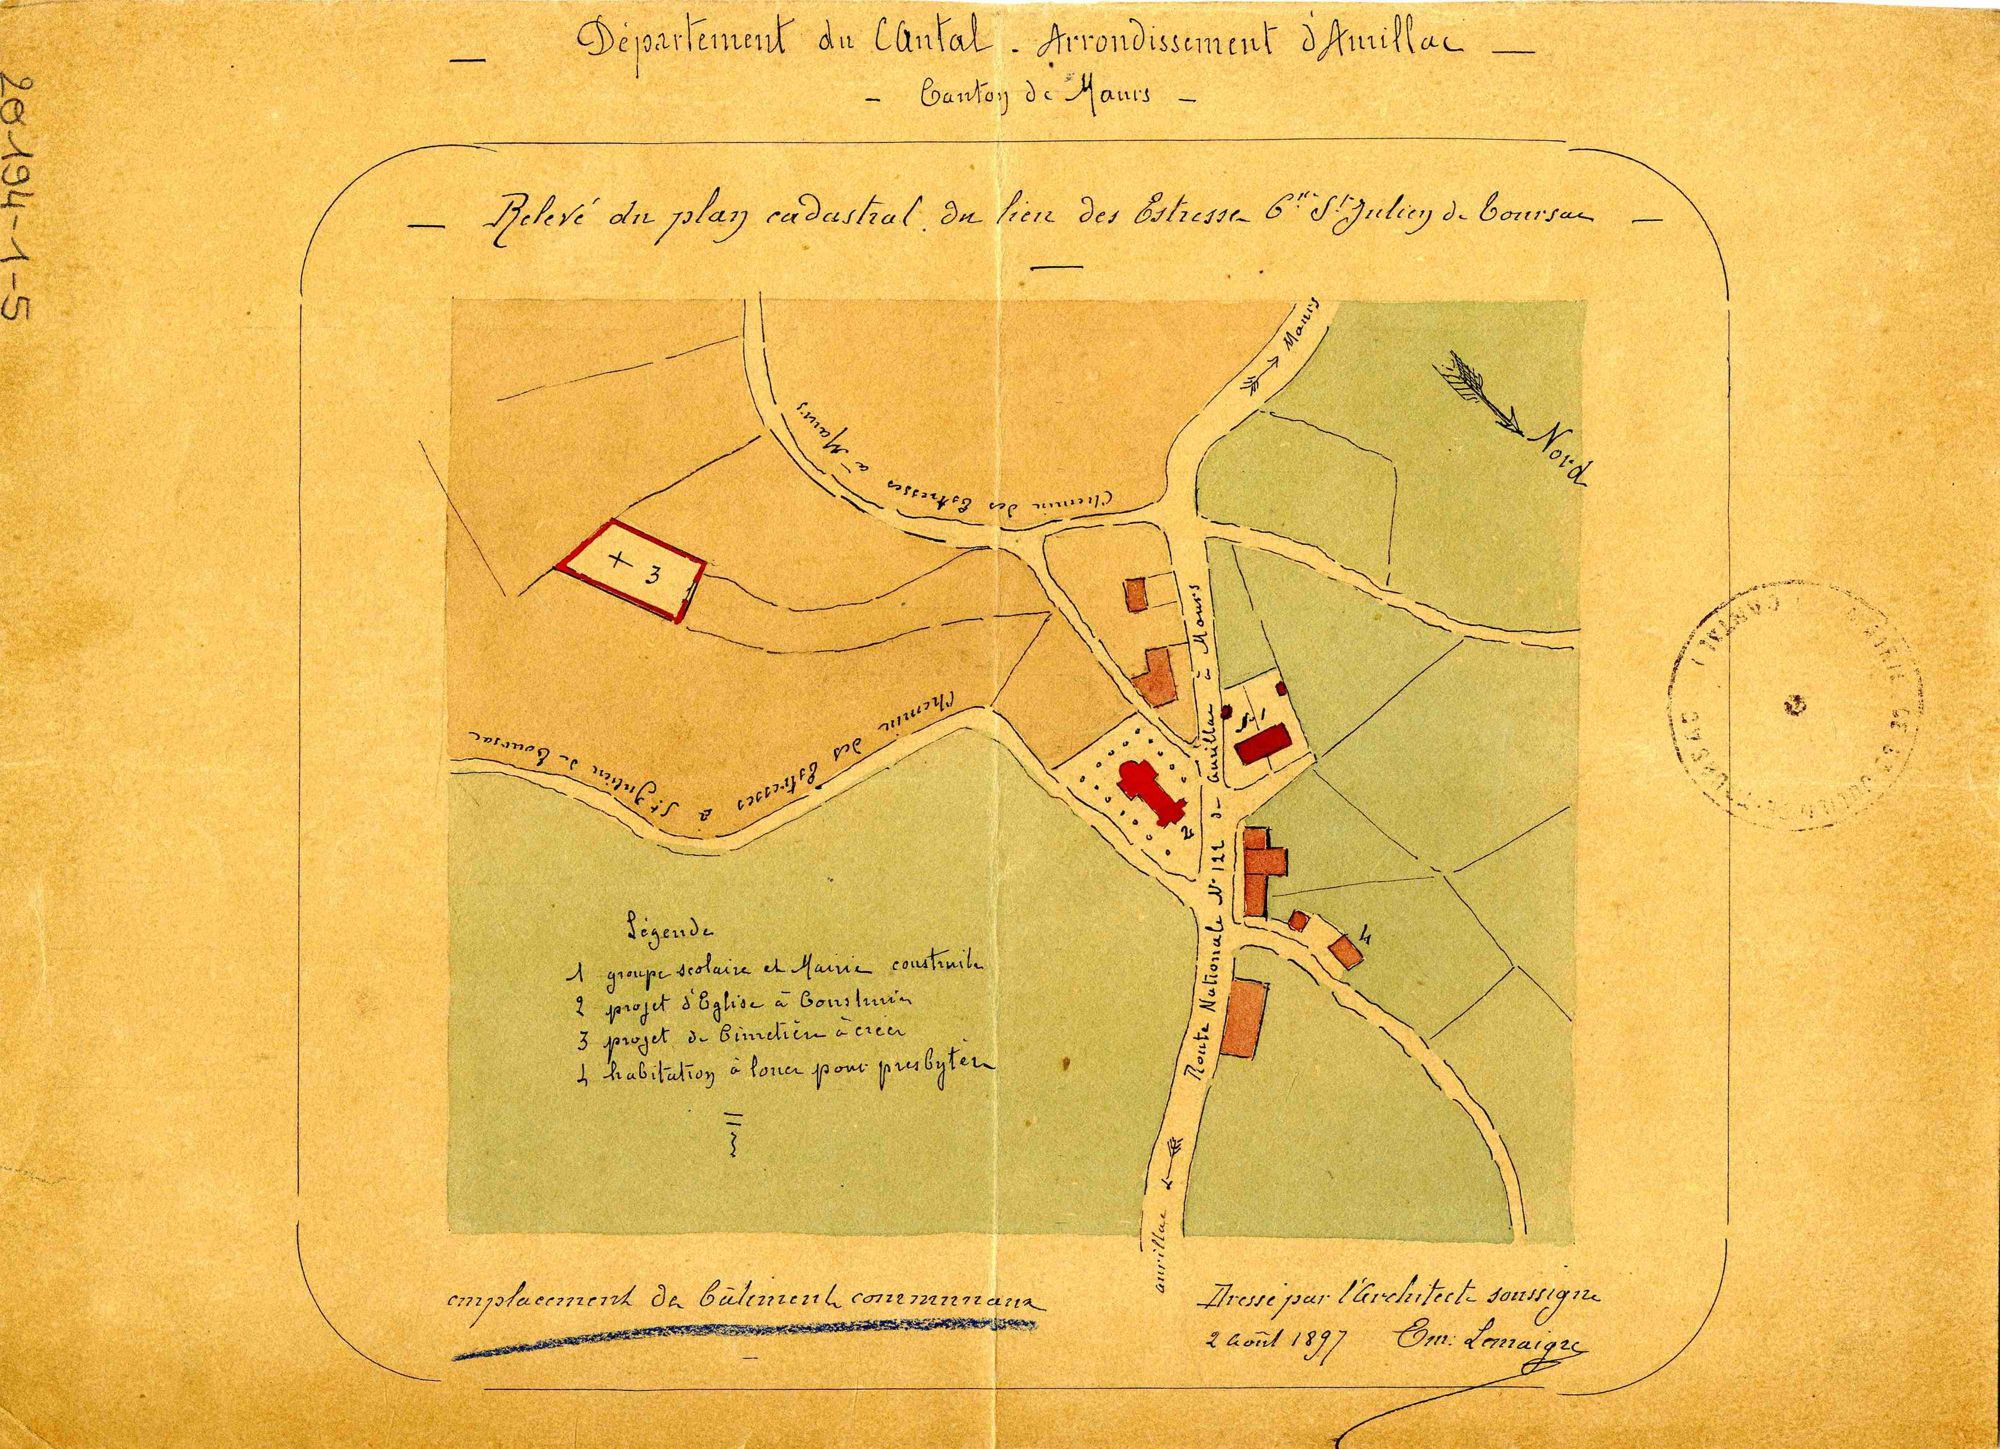 Département du Cantal - Arrondissement d'Aurillac
- Canton de Maurs -
20-194-1-5
Relevé du plan cadastral du lieu des Estresse Cne St Julien de Toursac
Maurs
Nord
Chemin des Estresses à Maurs
+ 3
Chemin des Estresses à St Julien de Toursac
1
2
4
Route Nationale N° 122 de Aurillac à Maurs
aurillac
Légende
1 groupe scolaire et Mairie construits
2 projet d'Eglise à Construire
3 projet de Cimetière à créer
4 habitation à louer pour presbytère
emplacement de bâtiments communaux
Dressé par l'Architecte soussigné
2 août 1897 Em. Lemaigre
(CANTAL)